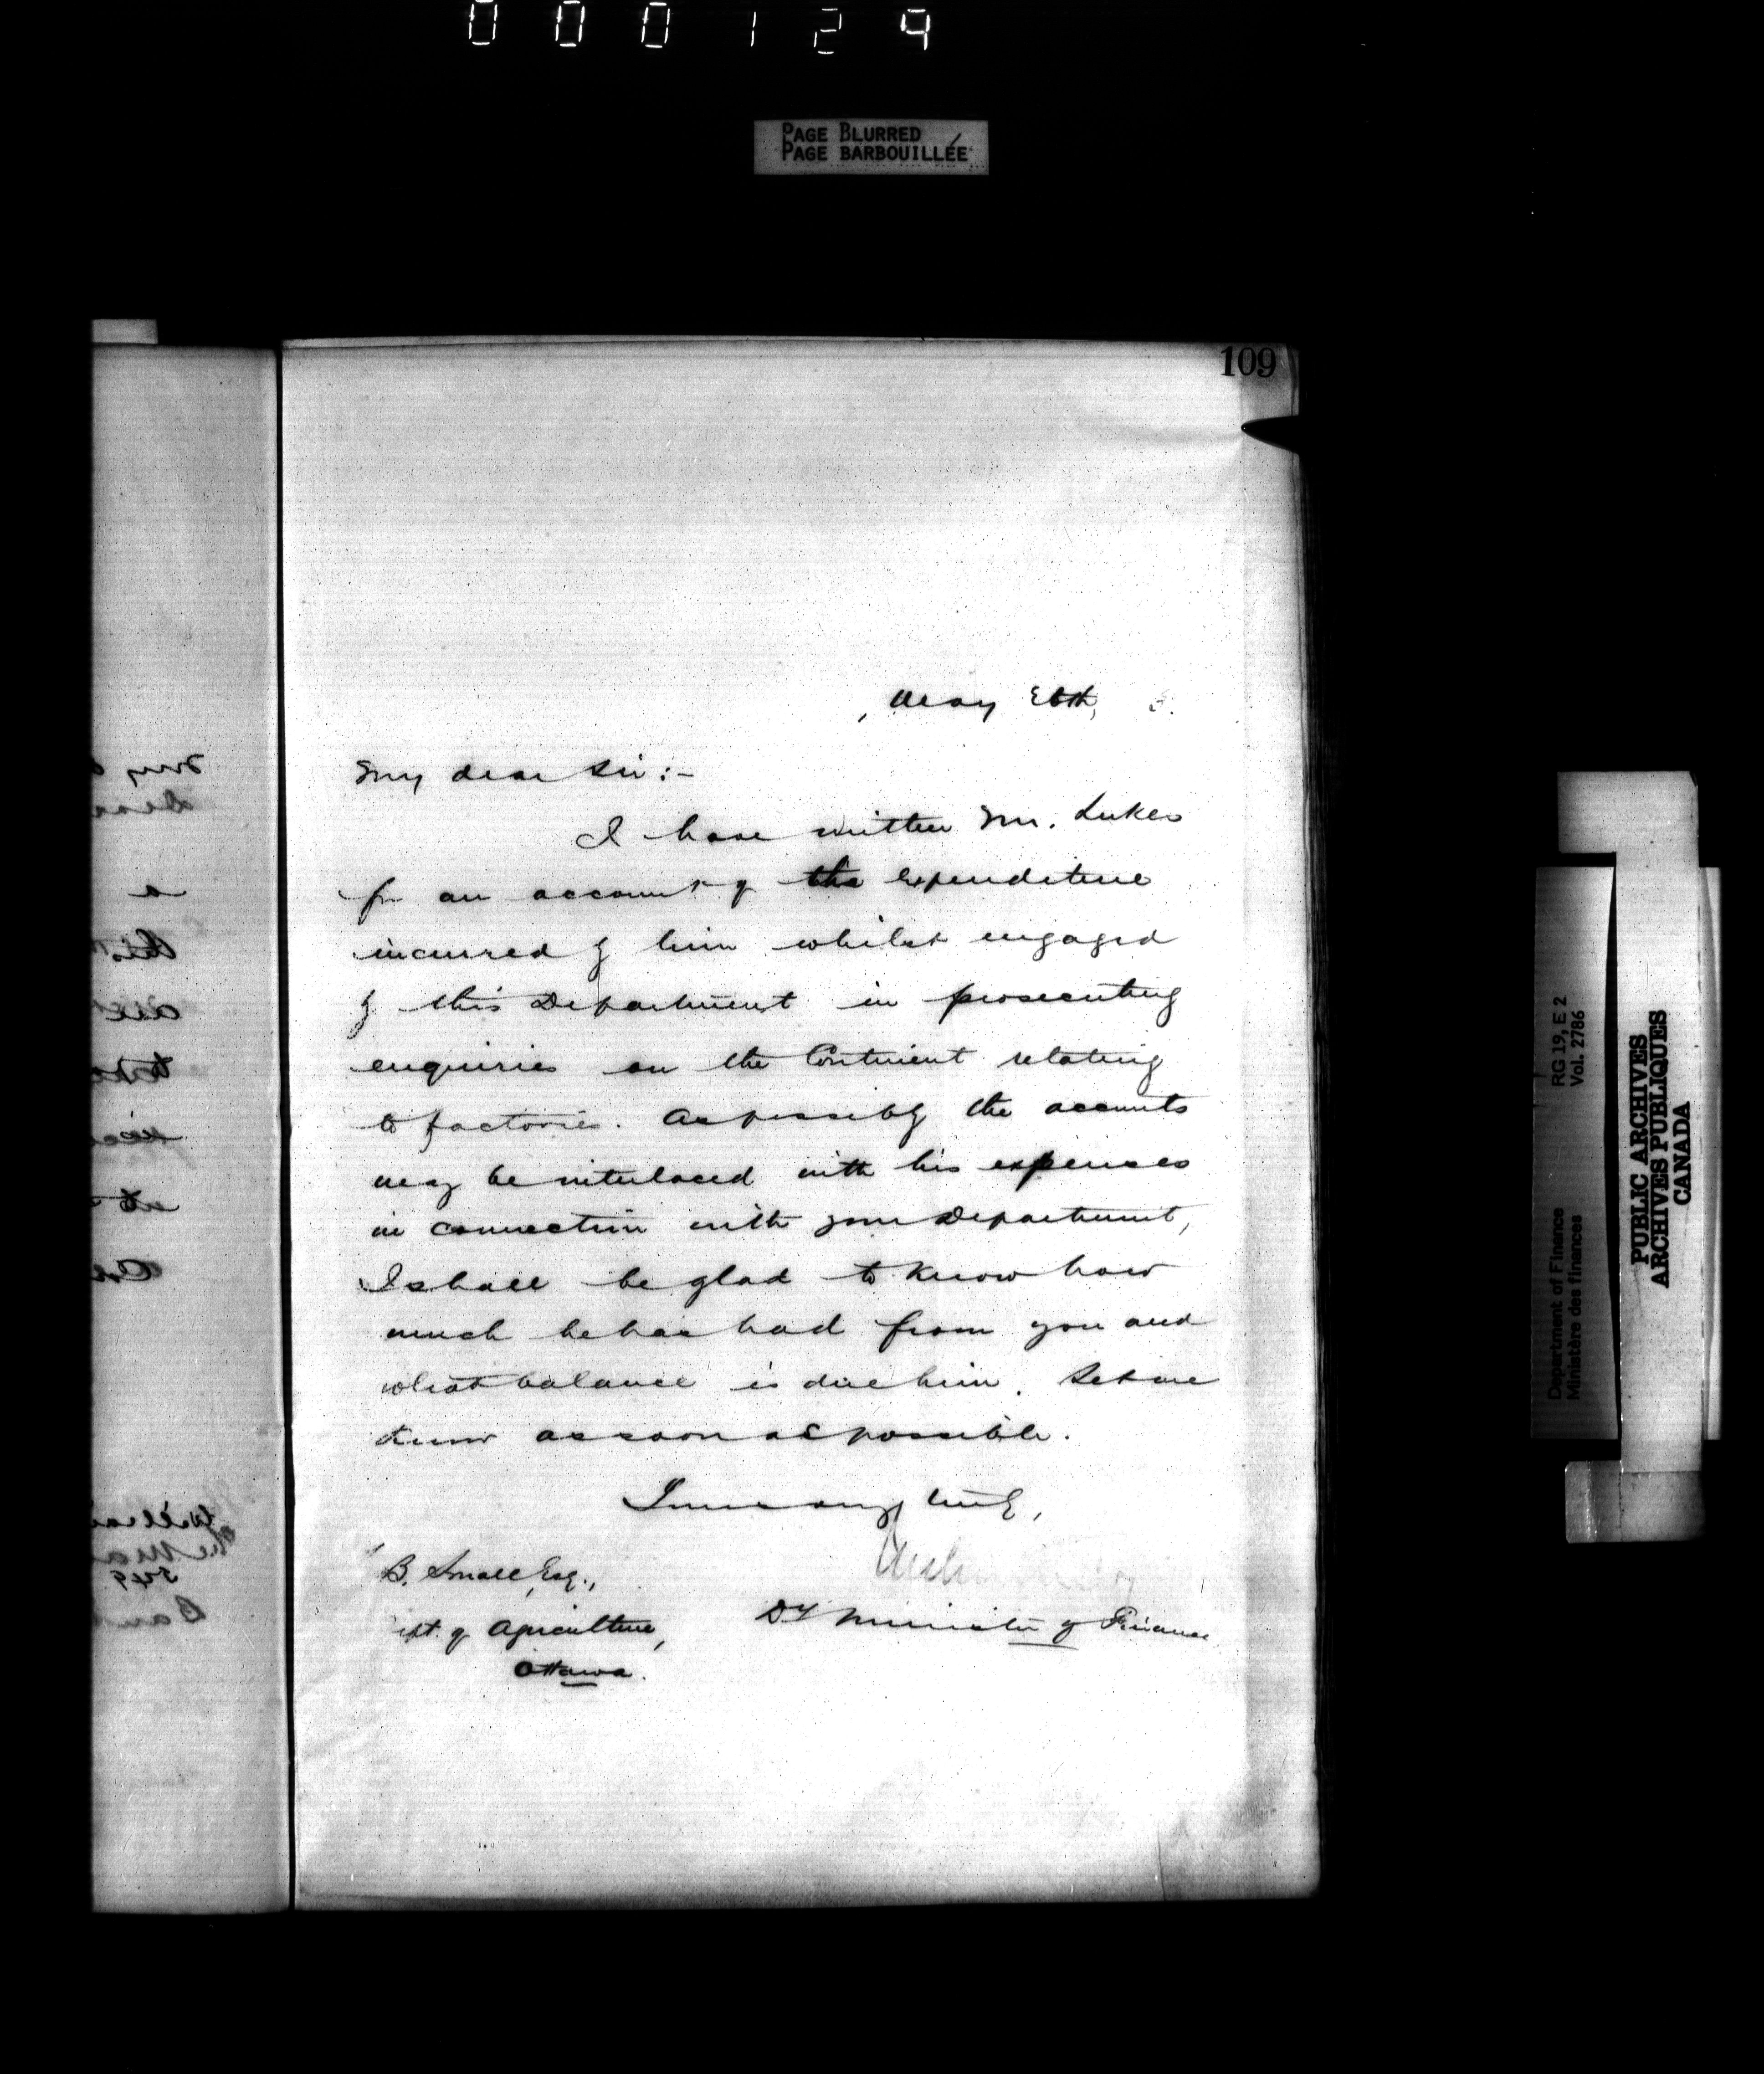 000129
PAGE BLURRED
PAGE BARBOUILLÉE
109
, May
My dear Sir:-
I have written Mr. Lukes
for an account of the expenditure
incurred by him whilst engaged
by this Department in prosecuting
enquiries on the Continent relating
to factories. As possibly the accounts
may be interlaced with his expenses
in connection with your Department,
I shall be glad to know how
much he has had from you and
what balance is due him. Let me
know as soon as possible.
Yours very truly,
B. Small, Esq.,
ept. of Agriculture,
Ottawa.
Dy Minister of Finance
RG 19, E 2
Vol. 2786
Department of Finance
Ministère des finances
PUBLIC ARCHIVES
ARCHIVES PUBLIQUES
CANADA